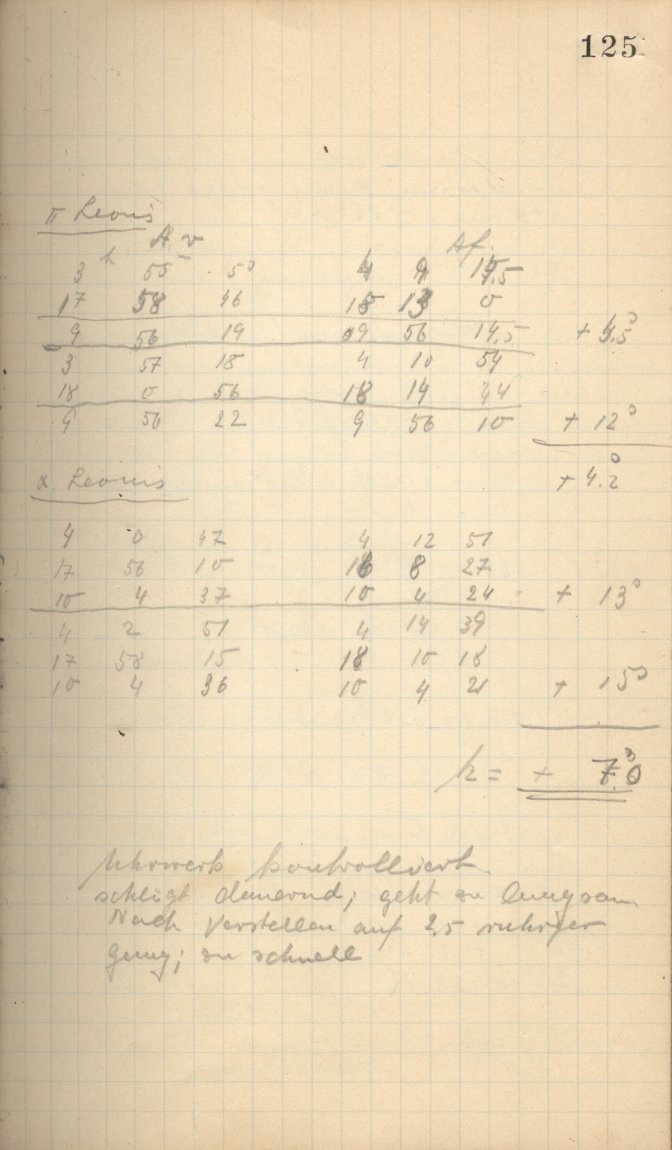 125
π Leonis
A v Af.
3 h 55 m 50 4 9 15.5
17 58 46 18 13 0
9 56 19 09 56 14,5 + 4.5
3 57 18 4 10 54
18 0 56 18 14 44
9 56 22 9 56 10 + 12
+ 4.2
α Leonis
4 0 47 4 12 51
17 56 10 18 8 27
10 4 37 10 4 24 + 13
4 2 51 4 14 39
17 58 15 18 10 18
10 4 36 10 4 21 + 15
k = + 7.0
Uhrwerk kontrolliert.
schlägt dauernd; geht zu langsam
Nach Verstellen auf 2,5 ruhiger
Gang; zu schnell